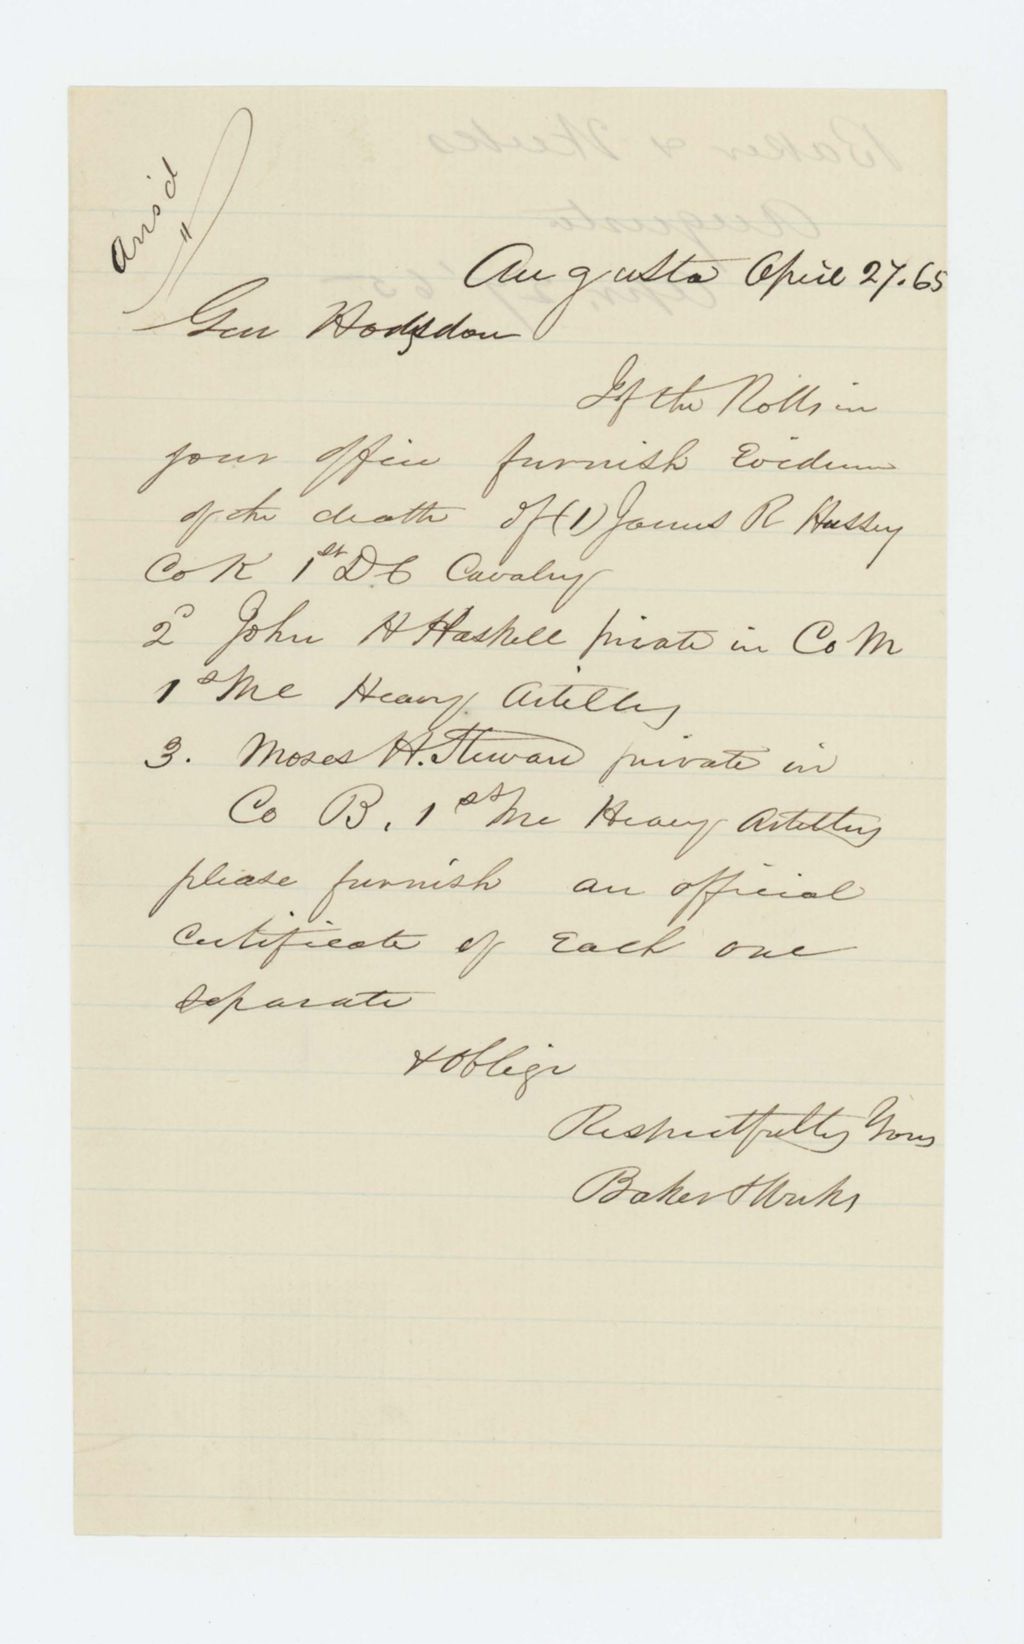 Ans'd
Augusta April 27. 65
Gen Hodsdon
If the Rolls in
your office furnish Evidence
of the death of (1) James R Hussey
Co K 1st D C Cavalry
2d John H Haskell private in Co M
1st Me Heavy Artillery
3. Moses H. Steward private in
Co B, 1st Me Heavy Artillery
please furnish an official
certificate of Each one
separate
& Oblige
Respectfully Yours
Baker & Weeks